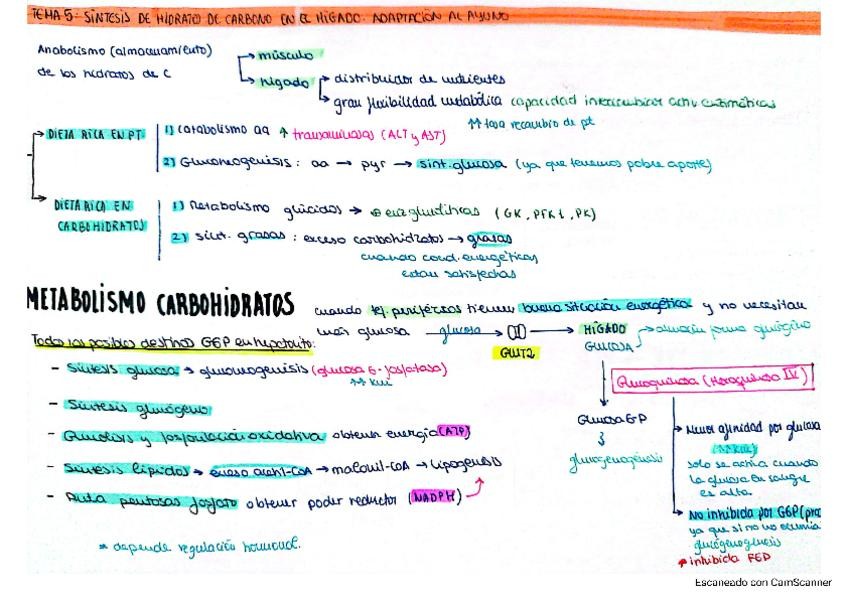 TEMA 5: SÍNTESIS DE HIDRATO DE CARBONO EN EL HÍGADO. ADAPTACIÓN AL AYUNO
Anabolismo (almacenamiento) de los hidratos de C
→ músculo
→ hígado
→ distribuidor de nutrientes
→ gran flexibilidad metabólica capacidad intercambiar activ enzimáticas
↑↑ tasa recambio de pt
→ DIETA RICA EN PT
1) Catabolismo aa ↑ transaminasas (ALT y AST)
2) Gluconeogénisis: aa → pyr → sint. glucosa (ya que tenemos pobre aporte)
→ DIETA RICA EN CARBOHIDRATOS
1) Metabolismo glúcidos → ⊕ enz glucolíticas (GK, PFK1, PK)
2) sínt. grasas: exceso carbohidratos → grasas
cuando cond. energéticas
estan satisfechas
METABOLISMO CARBOHIDRATOS
cuando tej. periféricos tienen buena situación energética y no necesitan
más glucosa glucosa → → HÍGADO → almacén forma glucógeno
GLUT2
GLUCOSA
Todos los posibles destinos G6P en hepatocito:
- Síntesis glucosa → gluconeogenisis (glucosa 6-fosfatasa)
↑↑ KM
- Síntesis glucógeno
- Glucolisis y fosforilación oxidativa obtener energía (ATP)
- Síntesis lípidos → exceso acetil-CoA → malonil-CoA → lipogenesis
- Ruta pentosas fosfato obtener poder reductor (NADPH)
* depende regulación hormonal.
Glucoquinasa (Hexoquinasa IV)
Glucosa 6P
glucogenogénesis
→ Menor afinidad por glucosa
(↑↑ KM)
solo se activa cuando
la glucosa en sangre
es alta.
→ No inhibida por G6P (pro
ya que si no no ocurriría
glucogenogénesis
inhibida F6P
Escaneado con CamScanner